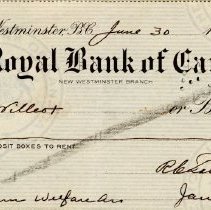 Westminster, B.C. June 30 1
Royal Bank of Ca
NEW WESTMINSTER BRANCH
Willcox or B
OSIT BOXES TO RENT
Welfare Ass
Jan